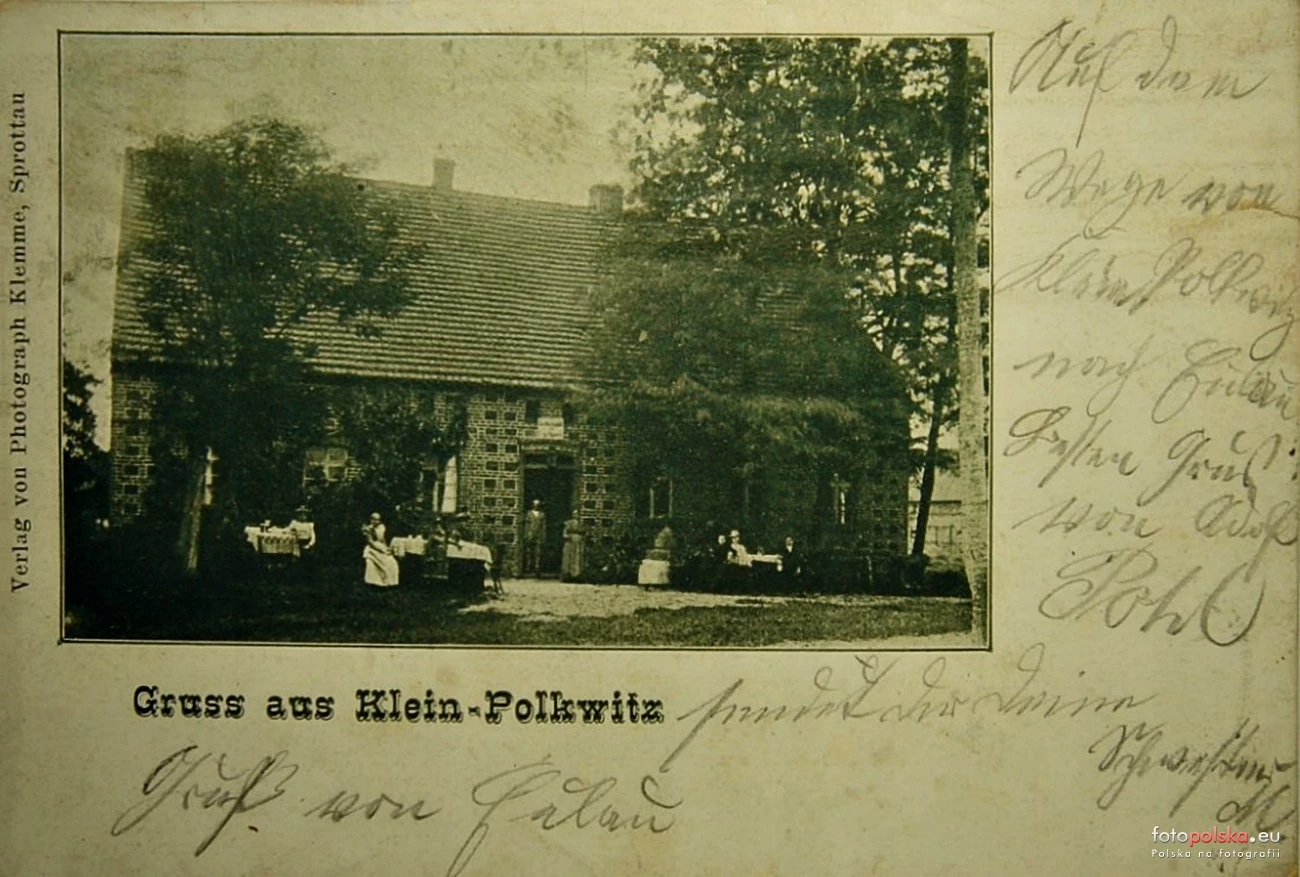 Verlag von Photograph Klemme, Sprottau
Auf dem
Wege von
Klein Polkwitz
nach Eulau
Besten Gruß
von Adolf
Pohl
Gruss aus Klein-Polkwitz
sendet dir deine
Schwester
M
Gruß von Eulau
fotopolska.eu
Polska na fotografii